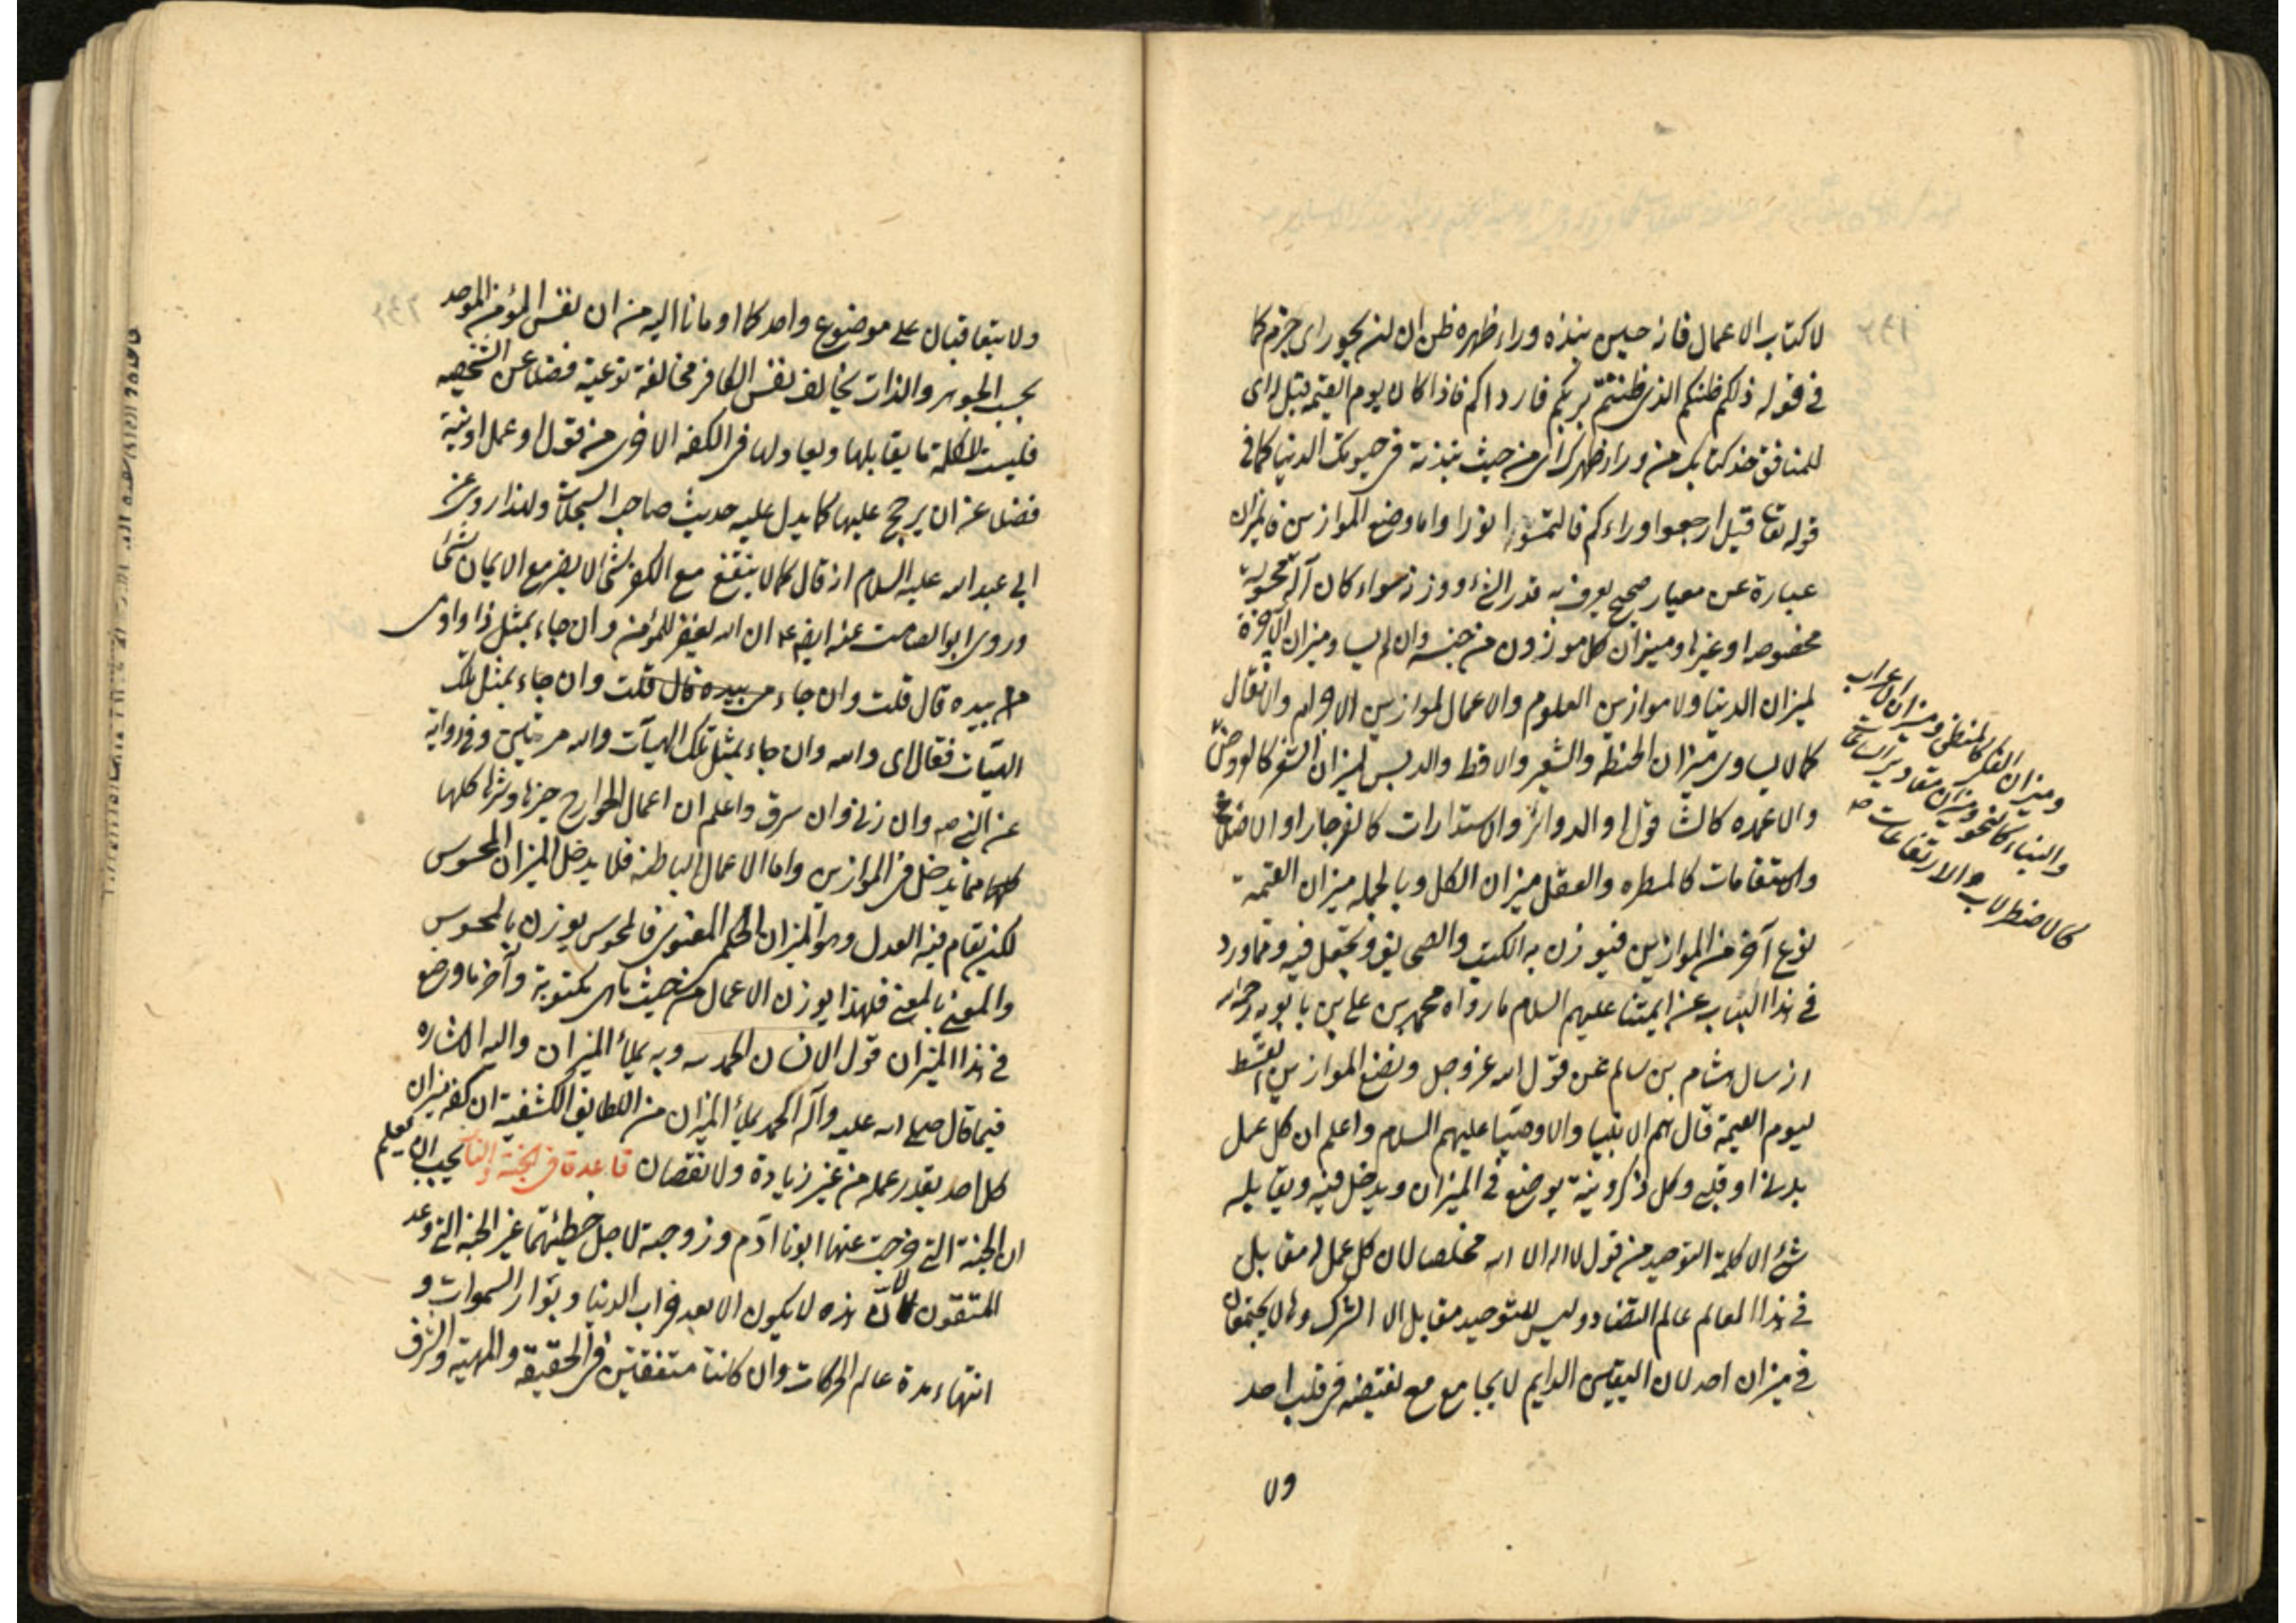 لا كتاب الاعمال فانه حين نبذه وراء ظهره ظن ان لن يحور اى جزم كما
فى قوله ذلكم ظنكم الذى ظننتم بربكم فارداكم فاذا كان يوم القيمة قيل له اى
للمنافق خذ كتابك من وراء ظهرك اى من حيث نبذته فى حيوتك الدنيا كما فى
قوله تعا قيل ارجعوا وراءكم فالتمسوا نورا واما وضع الموازين فالميزان
عبارة عن معيار صحيح يعرف به قدر الشئ ووزنه سواء كان آلة محسوسة
مخصوصه او غيرها وميزان كل موزون من جنسه وان لم يساو ميزان الآخرة
لميزان الدنيا ولا موازين العلوم والاعمال لموازين الاجرام والاثقال
كما لا يساوى ميزان الحنطه والشعير والاقط والدبس لميزان الشعر كالعروض
والاعمده كالشاقول والدوائر والاستدارات كالفرجار او الاضلاع
والاستقامات كالمسطره والعقل ميزان الكل وبالجمله ميزان القيمة
نوع آخر من الموازين فيوزن به الكتب والصحايف ويحتمل فيه ومما ورد
فى هذا الباب عن ايمتنا عليهم السلام ما رواه محمد بن على بن بابويه رحمه الله
انه سال هشام بن سالم عن قول الله عز وجل ونضع الموازين القسط
ليوم القيمة قال هم الانبيا والاوصيا عليهم السلام واعلم ان كل عمل
بدنى او قلبى وكل ذكر ونية يوضع فى الميزان ويدخل فيه ويقابله
شئ الا كلمة التوحيد من قول لا اله الا الله مخلصا لان كل عمل له مقابل
فى هذا العالم عالم التضاد وليس للتوحيد مقابل الا الشرك وهما لا يجتمعان
فى ميزان احد لان اليقين الدايم لا يجامع مع نقيضه فى قلب احد
ولا
وميزان الفكر كالمنطق وميزان الاعراب
والبناء كالنحو وميزان مقادير الساعات
والارتفاعات
كالاضطرلاب صه
ولا يتعاقبان على موضوع واحد كما اومانا اليه من ان نفس المؤمن الموحد
بحسب الجوهر والذات يخالف نفس الكافر مخالفة نوعية فضلا عن الشخصيه
فليست للكلمة ما يقابلها ويعادلها فى الكفه الاخرى من قول او عمل او نية
فضلا عن ان يرجح عليها كما يدل عليه حديث صاحب السجلات ولهذا روى عن
ابى عبد الله عليه السلام انه قال كما لا ينفع مع الكفر شئ لا يضر مع الايمان شئ
وروى ابو الصامت عنه ايضا ع ان الله يغفر للمؤمن وان جاء بمثل ذا واومى
بيده قال قلت وان جاء بيده قال قلت وان جاء بمثل تلك
الهيآت فقال اى والله وان جاء بمثل تلك الهيآت والله مرتين وفى رواية
عن النبى صه وان زنى وان سرق واعلم ان اعمال الجوارح خيرها وشرها كلها
مما يدخل فى الموازين واما الاعمال الباطنه فلا يدخل الميزان المحسوس
لكن يقام فيه العدل وهو الميزان الحكمى المعنوى فالمحسوس يوزن بالمحسوس
والمعنى بالمعنى فلهذا يوزن الاعمال من حيث ما هى مكتوبة وآخر ما وضع
فى هذا الميزان قول الانسان الحمد لله وبه يملأ الميزان واليه الاشاره
فيما قال صلى الله عليه وآله الحمد يملأ الميزان من اللطايف الكشفية ان كفه ميزان
كل احد بقدر عمله من غير زيادة ولا نقصان قاعدة فى الجنة والنار يجب ان يعلم
ان الجنة التى خرجت عنها ابونا آدم وزوجته لاجل خطيئتهما غير الجنة التى وعد
المتقون لان هذه لا يكون الا بعد خراب الدنيا وبوار السموات و
انتهاء مدة عالم الحركات وان كانتا متفقتين فى الحقيقة والمهية والشرف